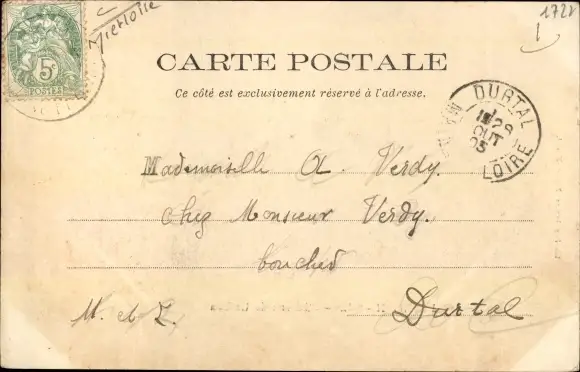 1722
5c
POSTES
CARTE POSTALE
Ce côté est exclusivement réservé à l'adresse.
DURTAL
28
OUT
03
LOIRE
Mademoiselle A. Verdy.
chez Monsieur Verdy.
boucher
M. et L. Durtal